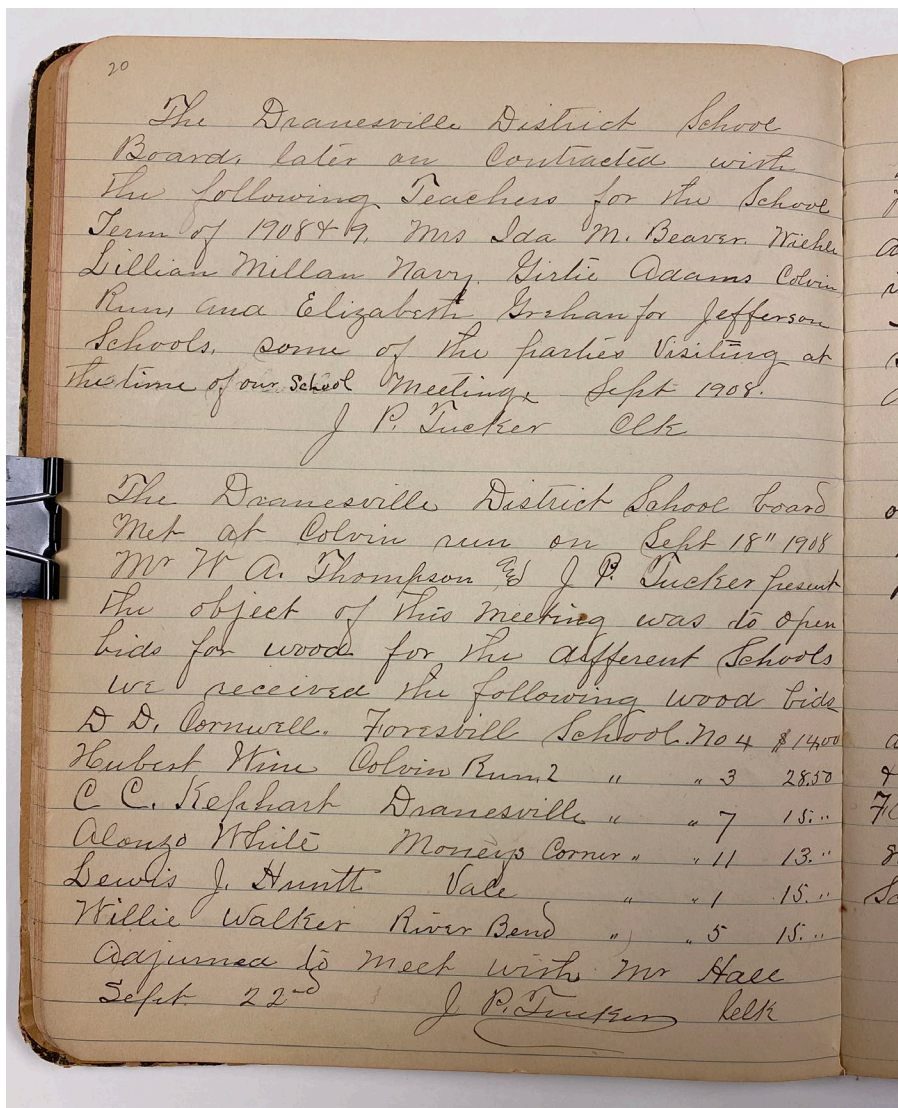 20
The Dranesville District School
Board, later on Contracted with
the following Teachers for the School
Term of 1908 & 9. Mrs Ida M. Beaver. Wiehle
Lillian Millan Navy, Girtie Adams Colvin
Run, and Elizabeth Grehan for Jefferson
Schools. some of the parties Visiting at
the time of our School Meeting, Sept 1908.
J P. Tucker Clk
The Dranesville District School board
Met at Colvin run on Sept 18" 1908
Mr W A. Thompson and J P. Tucker present
the object of this Meeting was to open
bids for wood for the different Schools
we received the following wood bids
D D. Cornwell. Forestvill School No 4 $14.00
Hubert Wine Colvin Run 2 " " 3 28.50
C C. Kephart Dranesville " " 7 15. "
Alonzo White Moneys Corner " " 11 13. "
Lewis J. Huntt Vale " " 1 15. "
Willie Walker River Bend " " 5 15. "
Adjurned to Meet with Mr Hall
Sept 22nd J P. Tucker Clk